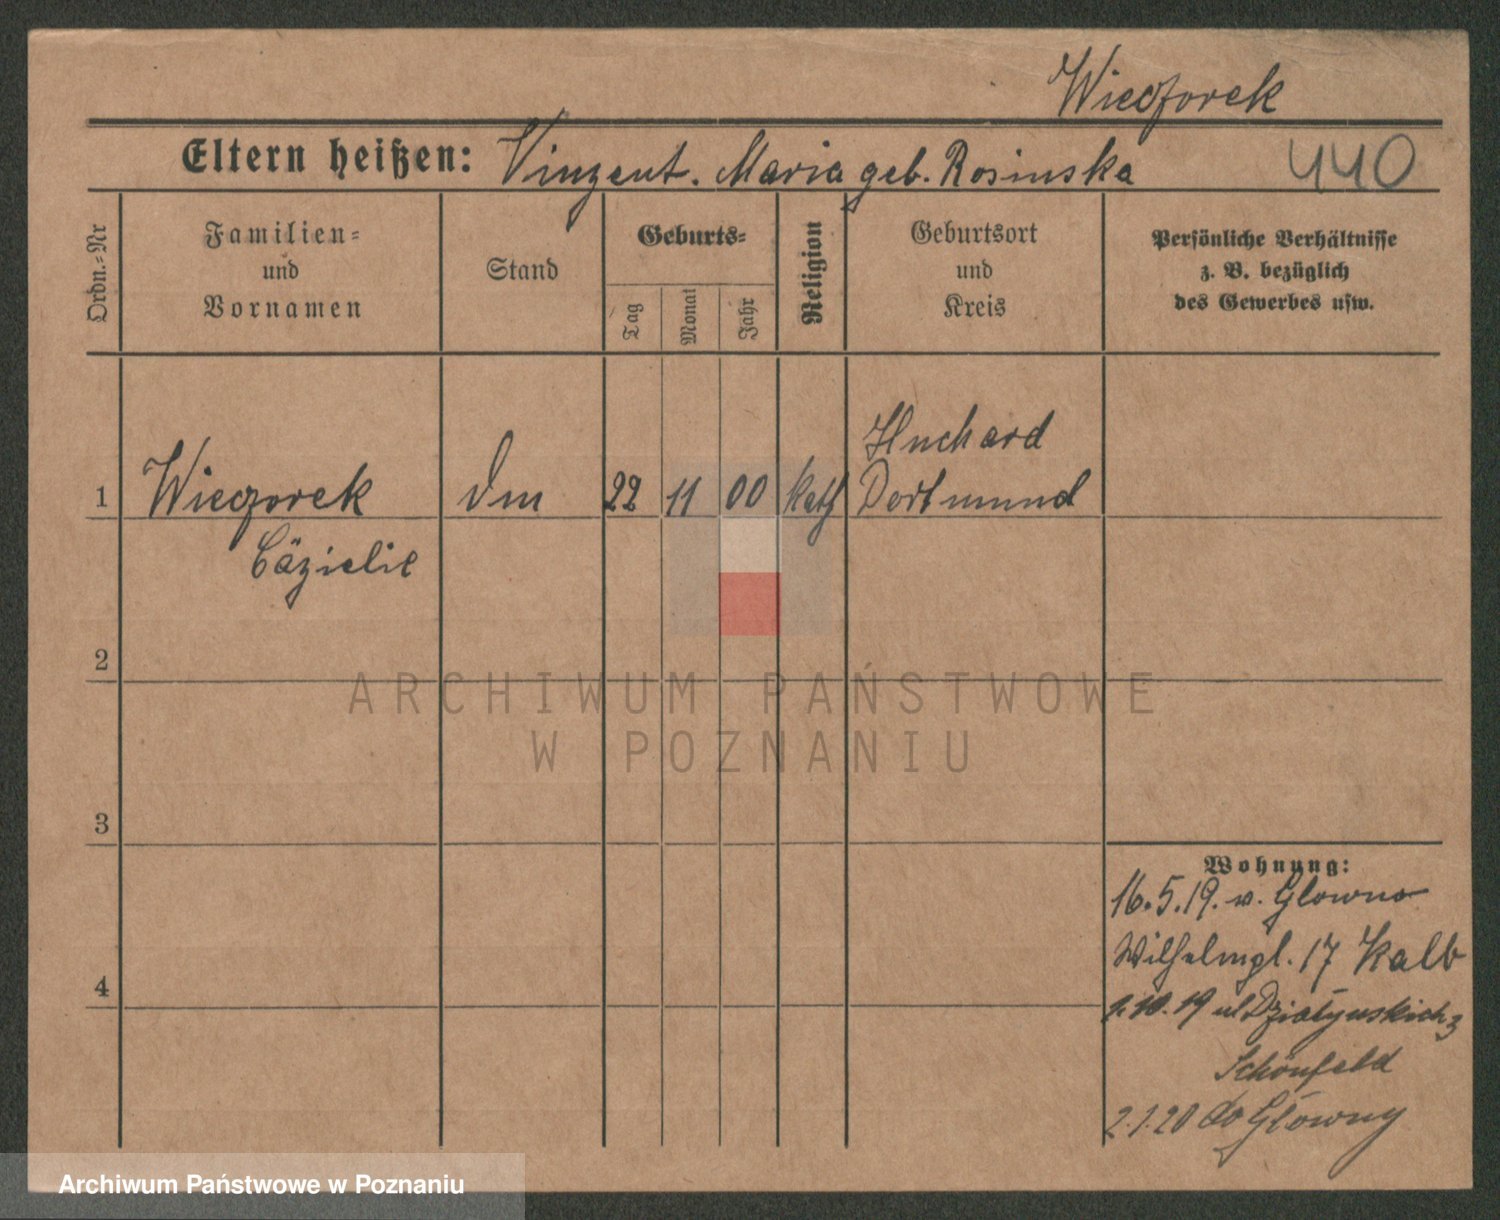 Wieczorek
Eltern heißen: Vinzent. Maria geb. Rosinska
440
Ordn.=Nr
Familien=
und
Vornamen
Stand
Geburts=
Tag
Monat
Jahr
Religion
Geburtsort
und
Kreis
Persönliche Verhältnisse
z. B. bezüglich
des Gewerbes usw.
1
Wieczorek
Cäzielie
22
11
00
kath
Huckard
Dortmund
2
3
4
ARCHIWUM PAŃSTWOWE
W POZNANIU
Wohnung:
16.5.19. v. Glowno
Wilhelmpl. 17 Kalb
1.10.19 ul Działyńskich 3
Schönfeld
2.1.20 do Główny
Archiwum Państwowe w Poznaniu